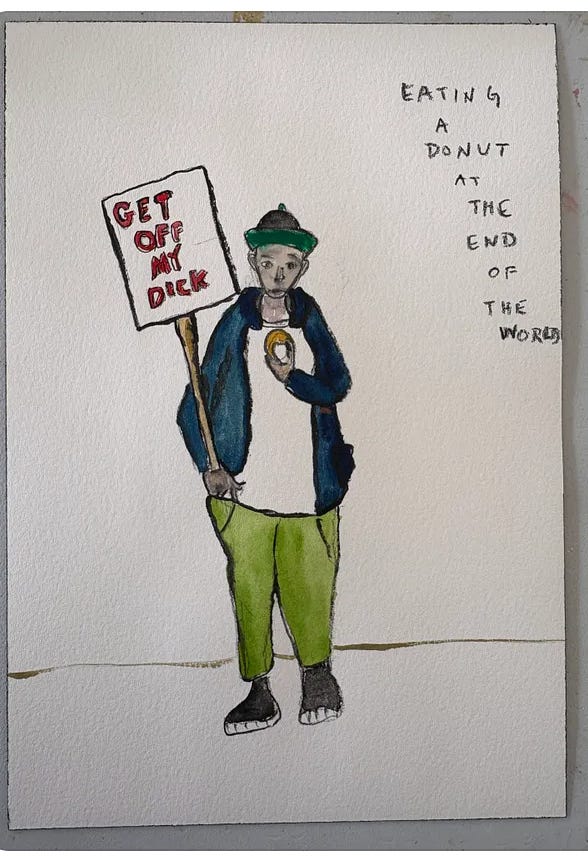 GET
OFF
MY
DICK
EATING
A
DONUT
AT
THE
END
OF
THE
WORLD